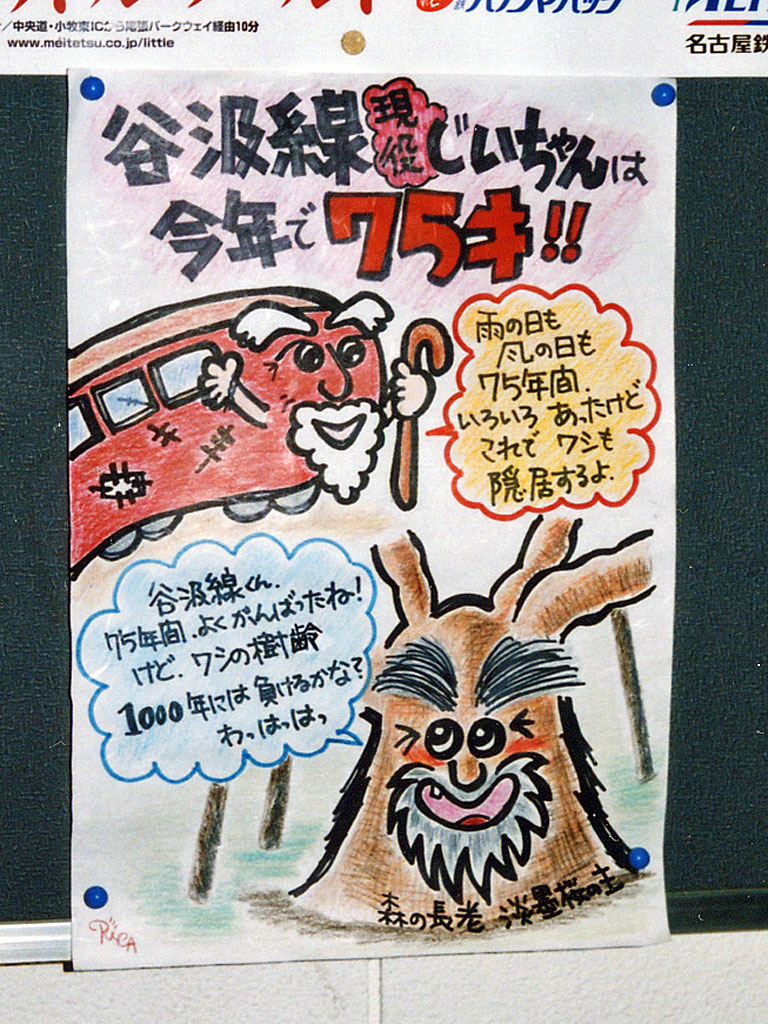 中央道・小牧東ICから尾張パークウェイ経由10分
www.meitetsu.co.jp/little
名古屋鉄
谷汲線現役じいちゃんは
今年で75才!!
雨の日も
風の日も
75年間.
いろいろ あったけど
これで ワシも
隠居するよ.
谷汲線くん.
75年間.よくがんばったね!
けど.ワシの樹齢
1000年には負けるかな?
わっはっはっ
森の長老 淡墨桜の主
RiCA